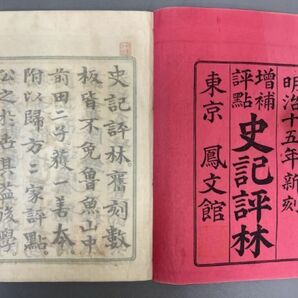 明治十五年新刻
增補
評點
史記評林
東京 鳳文館
史記評林舊刻數
板皆不免魯魚山中
前田二子獲一善本
附以歸方二家評點
公之於世其益後學